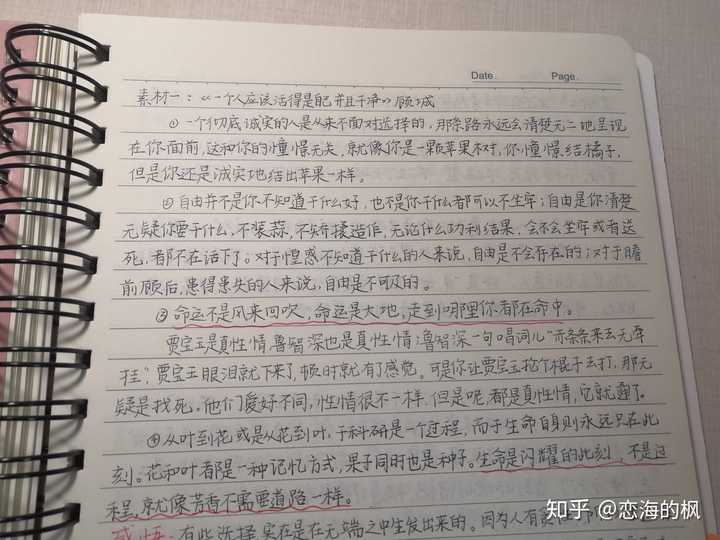 Date.
Page.
素材一:《一个人应该活得是自己并且干净》顾城
①一个彻底诚实的人是从来不面对选择的,那条路永远会清楚无二地呈现
在你面前,这和你的憧憬无关,就像你是一颗苹果树,你憧憬结橘子,
但是你还是诚实地结出苹果一样。
②自由并不是你不知道干什么好,也不是你干什么都可以不坐牢;自由是你清楚
无疑你要干什么,不装蒜,不矫揉造作,无论什么功利结果,会不会坐牢或者送
死,都不在话下了。对于惶惑不知道干什么的人来说,自由是不会存在的;对于瞻
前顾后,患得患失的人来说,自由是不可及的。
③命运不是风来回吹,命运是大地,走到哪里你都在命中。
贾宝玉是真性情,鲁智深也是真性情;鲁智深一句唱词儿“赤条条来去无牵
挂”,贾宝玉眼泪就下来了,顿时就有了感觉。可是你让贾宝玉抡个棍子去打,那无
疑是找死。他们爱好不同,性情很不一样,但是呢,都是真性情,它就通了。
④从叶到花,或是从花到叶,于科研是一个过程,而于生命自身则永远只在此
刻。花和叶都是一种记忆方式,果子同时也是种子。生命是闪耀的此刻,不是过
程,就像芳香不需要道路一样。
感悟:有些选择实在是在无端之中生发出来的。因为人有
知乎 @恋海的枫